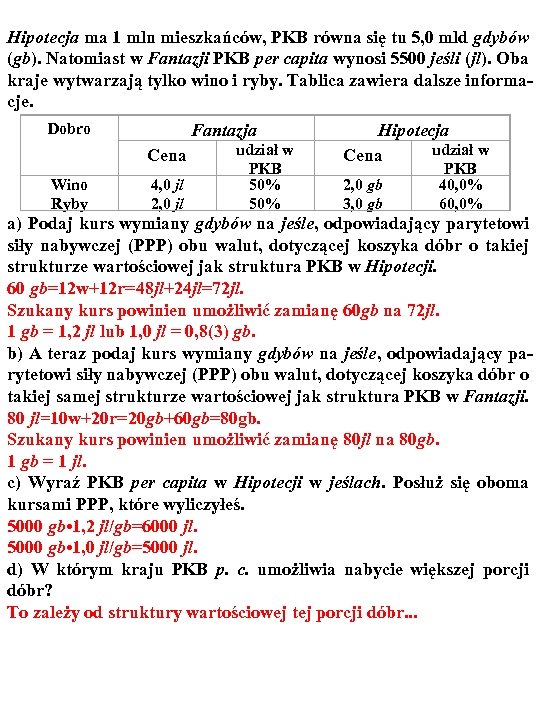 Hipotecja ma 1 mln mieszkańców, PKB równa się tu 5,0 mld gdybów
(gb). Natomiast w Fantazji PKB per capita wynosi 5500 jeśli (jl). Oba
kraje wytwarzają tylko wino i ryby. Tablica zawiera dalsze informa-
cje.
Dobro Fantazja Hipotecja
Cena udział w PKB Cena udział w PKB
Wino 4,0 jl 50% 2,0 gb 40,0%
Ryby 2,0 jl 50% 3,0 gb 60,0%
a) Podaj kurs wymiany gdybów na jeśle, odpowiadający parytetowi
siły nabywczej (PPP) obu walut, dotyczącej koszyka dóbr o takiej
strukturze wartościowej jak struktura PKB w Hipotecji.
60 gb=12w+12r=48jl+24jl=72jl.
Szukany kurs powinien umożliwić zamianę 60gb na 72jl.
1 gb = 1,2 jl lub 1,0 jl = 0,8(3) gb.
b) A teraz podaj kurs wymiany gdybów na jeśle, odpowiadający pa-
rytetowi siły nabywczej (PPP) obu walut, dotyczącej koszyka dóbr o
takiej samej strukturze wartościowej jak struktura PKB w Fantazji.
80 jl=10w+20r=20gb+60gb=80gb.
Szukany kurs powinien umożliwić zamianę 80jl na 80gb.
1 gb = 1 jl.
c) Wyraź PKB per capita w Hipotecji w jeślach. Posłuż się oboma
kursami PPP, które wyliczyłeś.
5000 gb•1,2 jl/gb=6000 jl.
5000 gb•1,0 jl/gb=5000 jl.
d) W którym kraju PKB p. c. umożliwia nabycie większej porcji
dóbr?
To zależy od struktury wartościowej tej porcji dóbr...